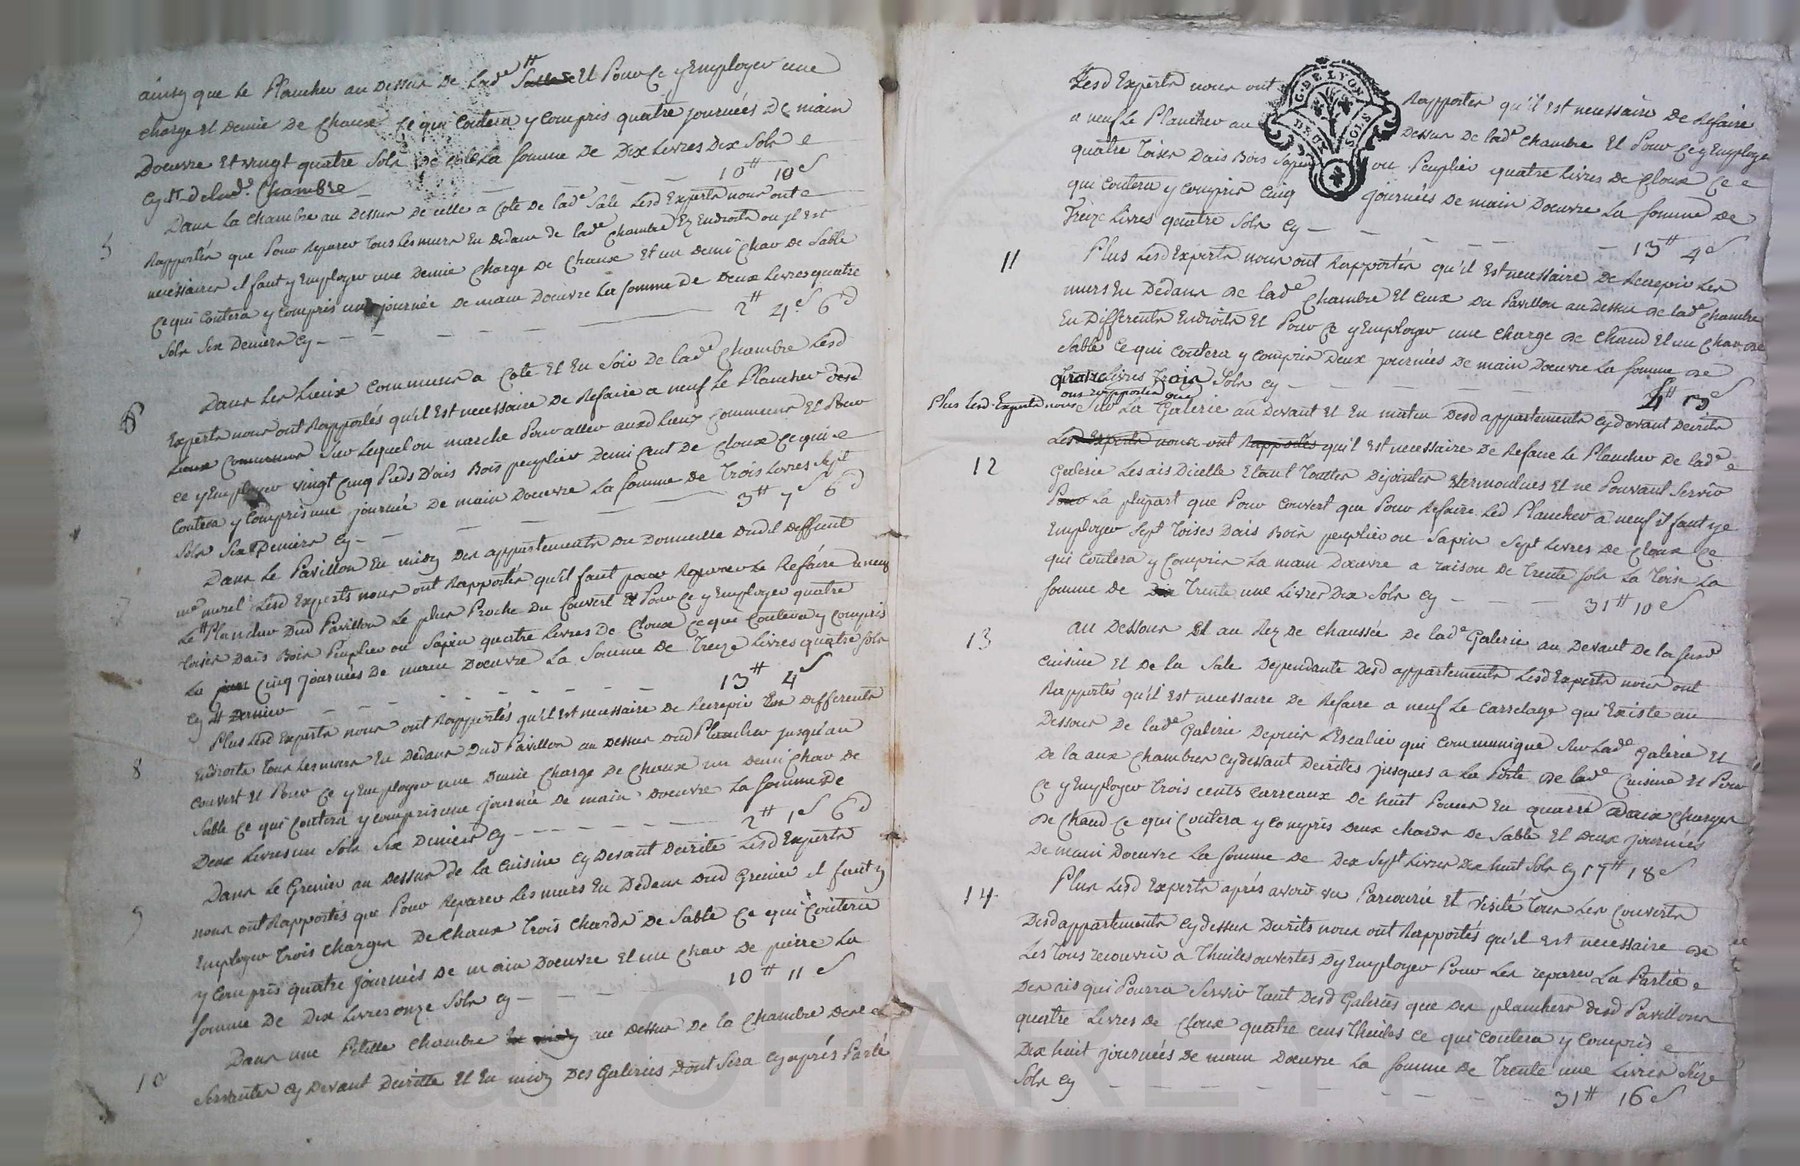 ainsy que le Plancher au dessus de lad.e Salle Et Pour Ce y Employer une
charge Et demie de Chaux Ce qui Coutera y Compris quatre journées de main
Doeuvre Et vingt quatre Sols de la somme de Dix Livres Dix Sols
Cy 10# 10s
Chambre
Dans la chambre au dessus de celle a Coté de lad.e Sale Lesd Experts nous ont
5
Rapportés que Pour Reparer tous les murs En dedans de lad.e Chambre Es Endroits ou jl Est
necessaires il faut y Employer une demie charge de chaux Et un demi char de Sable
Ce qui Coutera y Compris une journée de main Doeuvre La somme de Deux Livres quatre
Sols Six Deniers Cy 2# 4s 6d
Dans Les Lieux Communs a Coté Et En Soir de lad.e Chambre Lesd
6
Experts nous ont Rapportés qu'il Est necessaire de Refaire a neuf Le Plancher desd
Lieux Communs Sur Lequel on marche Pour aller auxd Lieux Communs Et Pour
ce y Employer vingt Cinq Pieds D'ais Bois peuplier Demi Cent de Cloux Ce qui
Coutera y Compris une journée de main Doeuvre La somme de Trois Livres Sept
Sols Six Deniers Cy 3# 7s 6d
Dans Le Pavillon En midy des appartements du Domicille Dud deffunt
7
m.e murel Lesd Experts nous ont Rapportés qu'il faut pour Reparer Le Refaire a neuf
Le Plancher Dud Pavillon Le plus Proche du Couvert Et Pour Ce y Employer quatre
toises D'ais Bois Peuplier ou Sapin quatre Livres de Cloux Ce que Coutera y Compris
La Cinq journées de main Doeuvre La Somme de Treize Livres quatre Sols
Cy 13# 4s
Plus Lesd Experts nous ont Rapportés qu'il Est necessaire de Recrepir En differents
8
Endroits tous Les murs En Dedans Dud Pavillon au dessus dud Plancher jusqu'au
Couvert Et Pour Ce y Employer une Demie Charge de Chaux un Demi Char de
Sable Ce qui Coutera y Compris une journée de main Doeuvre La somme de
Deux Livres un Sols Six Deniers Cy 2# 1s 6d
Dans Le Grenier au dessus de la Cuisine Cy devant Decrite Lesd Experts
9
nous ont Rapportés que Pour Reparer Les murs En Dedans Dud Grenier il faut y
Employer Trois Charges de Chaux Trois Chards de Sable Ce qui Coutera
y Compris quatre journées de main Doeuvre Et un Char de pierre La
somme de Dix Livres onze Sols Cy 10# 11s
Dans une Petitte Chambre au dessus de la Chambre des
10
Servantes Cy Devant Decritte Et En midy Des Galeries Dont Sera Cy après Parlé
Lesd Experts nous ont Rapportés qu'il Est necessaire de Refaire
a neuf Le Plancher au Dessus de lad.e Chambre Et Pour Ce y Employer
quatre Toises Dais Bois Sapin ou Peuplier quatre Livres de Cloux Ce
qui Coutera y Compris Cinq journées de main Doeuvre La somme de
Treize Livres quatre Sols Cy 13# 4s
G. DE LYON
DEUX SOLS
11
Plus Lesd Experts nous ont Rapportés qu'il Est necessaire de Recrepir Les
murs En Dedans de lad.e Chambre Et Ceux du Pavillon au dessus de lad.e Chambre
En Differents Endroits Et Pour Ce y Employer une Charge de Chaud Et un Char de
Sable Ce qui Coutera y Compris Deux journées de main Doeuvre La somme de
quatre Livres Trois Sols Cy 4# 3s
Plus Lesd Experts nous ont Rapportés que Sur La Galerie au Devant Et En matin Desd appartements Cy devant Decrits
Lesd Experts nous ont Rapportés qu'il Est necessaire de Refaire Le Plancher de lad.e
12
Galerie Les ais Dicelle Etant Toutes Dejointes vermoulues Et ne Pouvant Servir
Pour La plupart que Pour Couvert que Pour Refaire Led Plancher a neuf il faut y
Employer Sept Toises Dais Bois peuplier ou Sapin Sept Livres de Cloux Ce
qui Coutera y Compris La main Doeuvre a raison de Trente Sols La Toise La
somme de Trente une Livres Dix Sols Cy 31# 10s
13
au Dessous Et au Rez de Chaussée de lad.e Galerie au Devant de la susd
Cuisine Et de la Sale Dependante Desd appartements Lesd Experts nous ont
Rapportés qu'il Est necessaire de Refaire a neuf Le Carrelage qui Existe au
Dessous de lad.e Galerie Depuis L'Escalier qui Communique Sur Lad.e Galerie Et
De la aux Chambres Cy devant Decrites jusques a La Porte de lad.e Cuisine Et Pour
Ce y Employer Trois Cents Carreaux de huit Pouces En quarré Deux Charges
de Chaud Ce qui Coutera y Compris Deux Chards de Sable Et Deux journées
De main Doeuvre La somme de Dix Sept Livres Dix huit Sols Cy 17# 18s
14
Plus Lesd Experts après avoir vu Parcourir Et Visité Tous Les Couverts
Desd appartements Cy dessus Decrits nous ont Rapportés qu'il Est necessaire de
Les Tous recouvrir a Thuiles ouvertes D'y Employer Pour Les reparer La Partie
Des ais qui Pourra Servir Tant Desd Galeries que Des planchers Desd Pavillons
quatre Livres de Cloux quatre Cens Thuiles Ce qui Coutera y Compris
Dix huit journées de main Doeuvre La somme de Trente une Livres Seize
Sols Cy 31# 16s